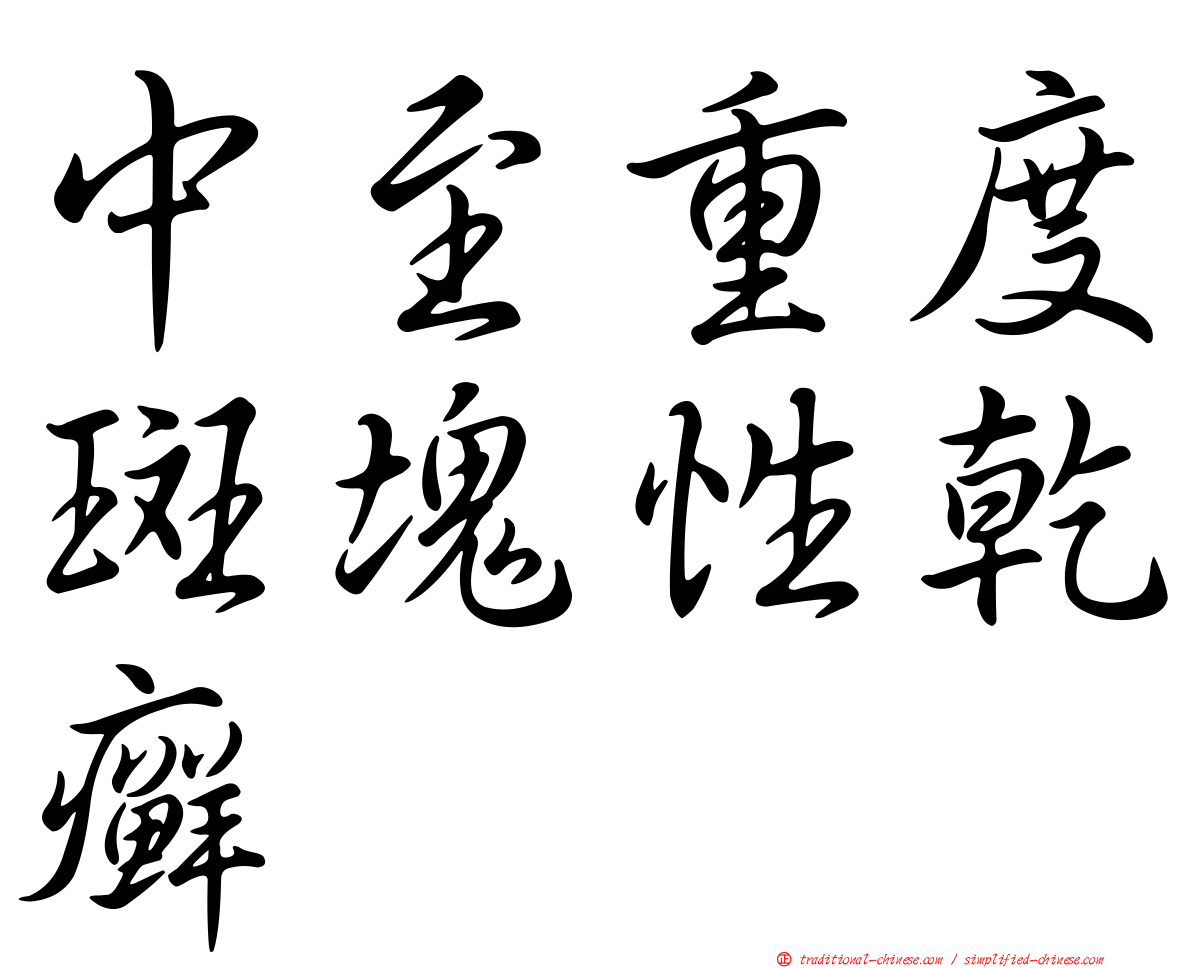 中至重度
斑塊性乾
癬
㊣ traditional-chinese.com / simplified-chinese.com